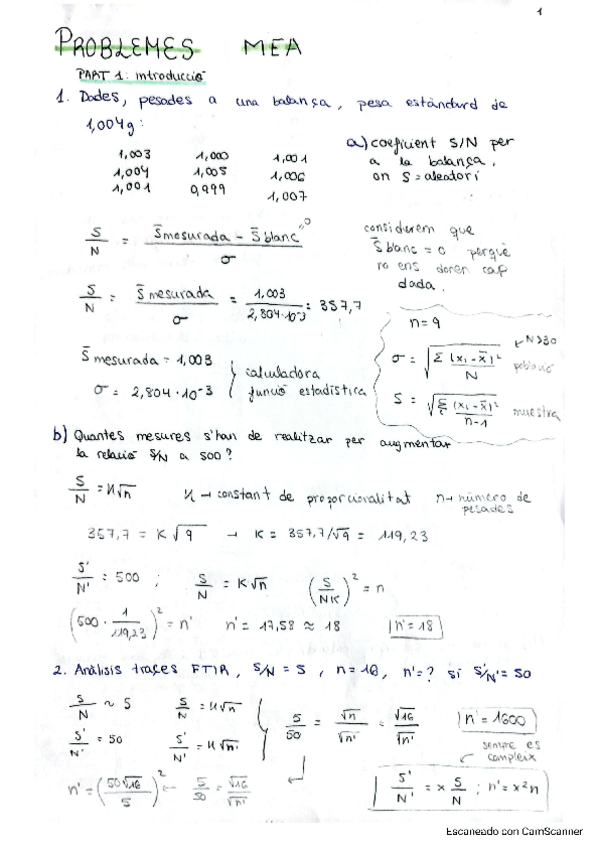 1
PROBLEMES MEA
PART 1: introducció
1. Dades, pesades a una balança, pesa estàndard de
1,004g:
1,003 1,000 1,001
1,004 1,005 1,006
1,001 0,999 1,007
a) coeficient S/N per
a la balança,
on S = aleatori
S/N = (S̄mesurada - S̄blanc⁼⁰)/σ
S/N = S̄mesurada/σ = 1,003/2,804·10⁻³ = 357,7
considerem que
S̄blanc = 0 perquè
no ens donen cap
dada.
S̄mesurada = 1,003
σ = 2,804·10⁻³
calculadora
funció estadística
n=9
N>30
σ = √(Σ(xi - x̄)²/N) població
S = √(Σ(xi - x̄)²/n-1) muestra
b) Quantes mesures s'han de realitzar per augmentar
la relació S/N a 500?
S/N = K√n K → constant de proporcionalitat n → número de
pesades
357,7 = K√9 → K = 357,7/√9 = 119,23
S'/N' = 500 ; S/N = K√n (S/NK)² = n
(500 · 1/119,23)² = n' n' = 17,58 ≈ 18 n' = 18
2. Anàlisis traces FTIR, S/N = 5, n = 16, n' = ? si S'/N' = 50
S/N ~ 5 S/N = K√n
S'/N' = 50 S'/N' = K√n'
5/50 = √n/√n' = √16/√n' n' = 1600
sempre es
compleix
n' = (50√16/5)² ← 5/50 = √16/√n'
S'/N' = x S/N ; n' = x²n
Escaneado con CamScanner